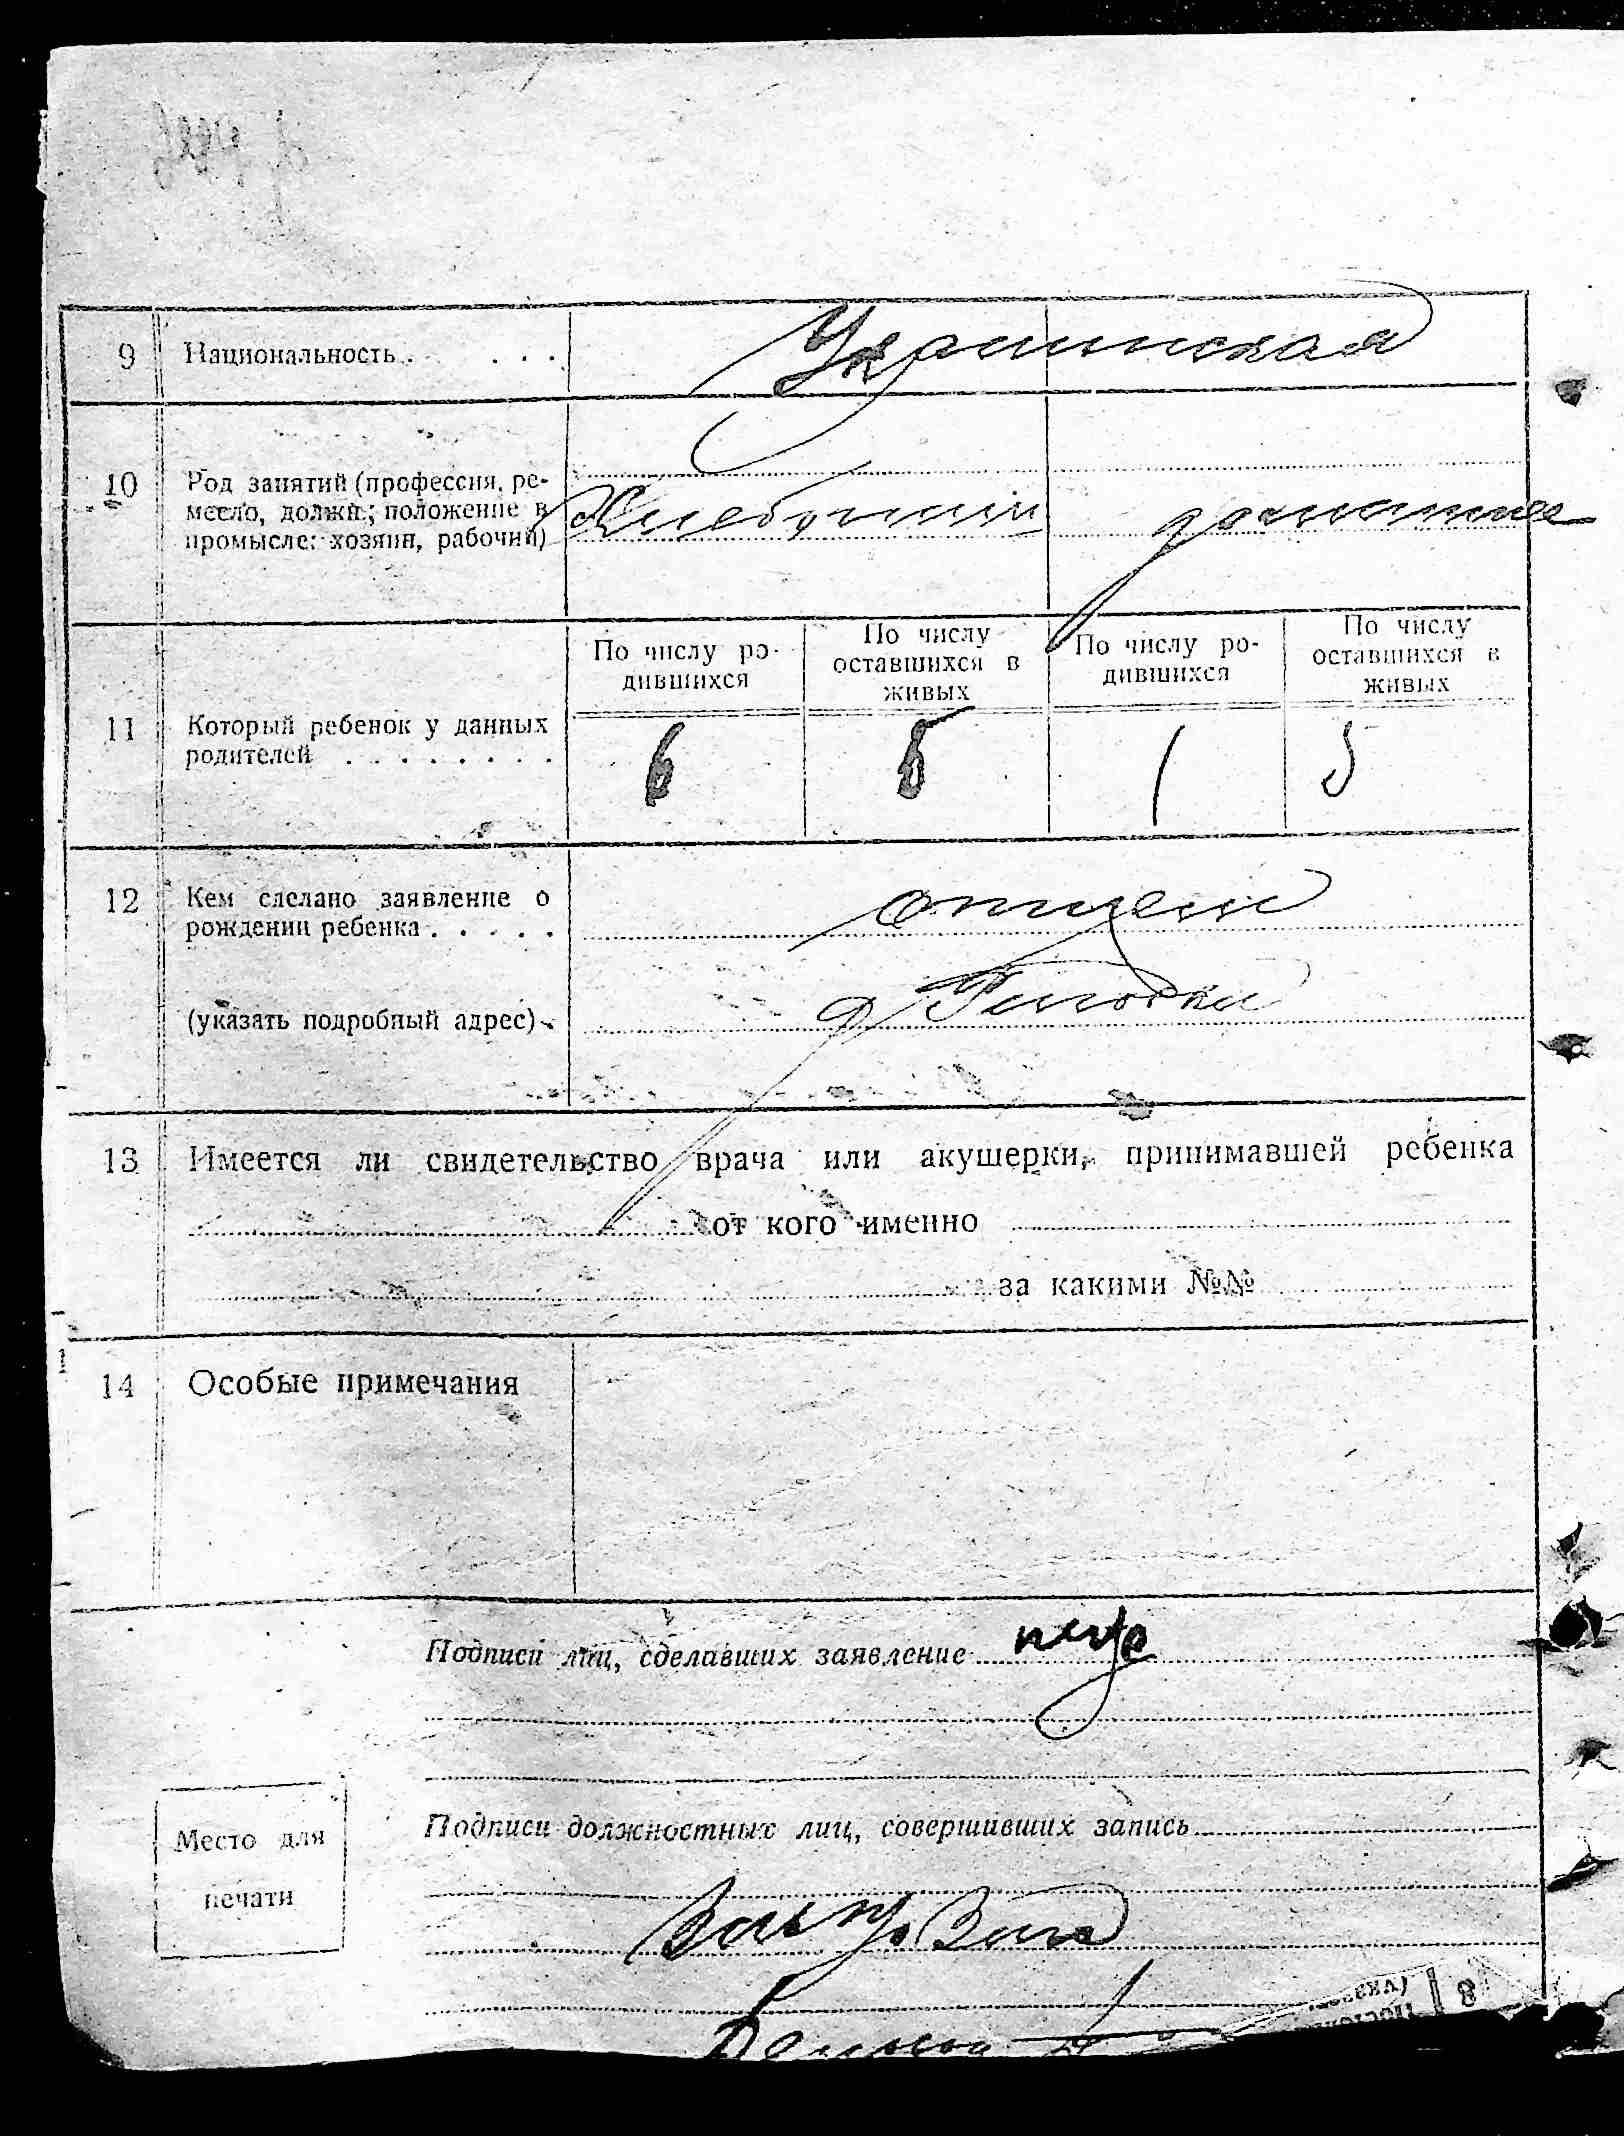 9 Национальность . . . . Украинская
10 Род занятий (профессия, ре-
месло, должн.; положение в
промысле: хозяин, рабочий)
Хлебопашец домашнее
По числу ро-
дившихся
По числу
оставшихся в
живых
По числу ро-
дившихся
По числу
оставшихся в
живых
11 Который ребенок у данных
родителей . . . . . . . .
6 5 1 5
12 Кем сделано заявление о
рождении ребенка . . . . .
отцем
(указать подробный адрес)
13 Имеется ли свидетельство врача или акушерки, принимавшей ребенка
от кого именно
за какими №№
14 Особые примечания
Подписи лиц, сделавших заявление
Место для
печати
Подписи должностных лиц, совершивших запись